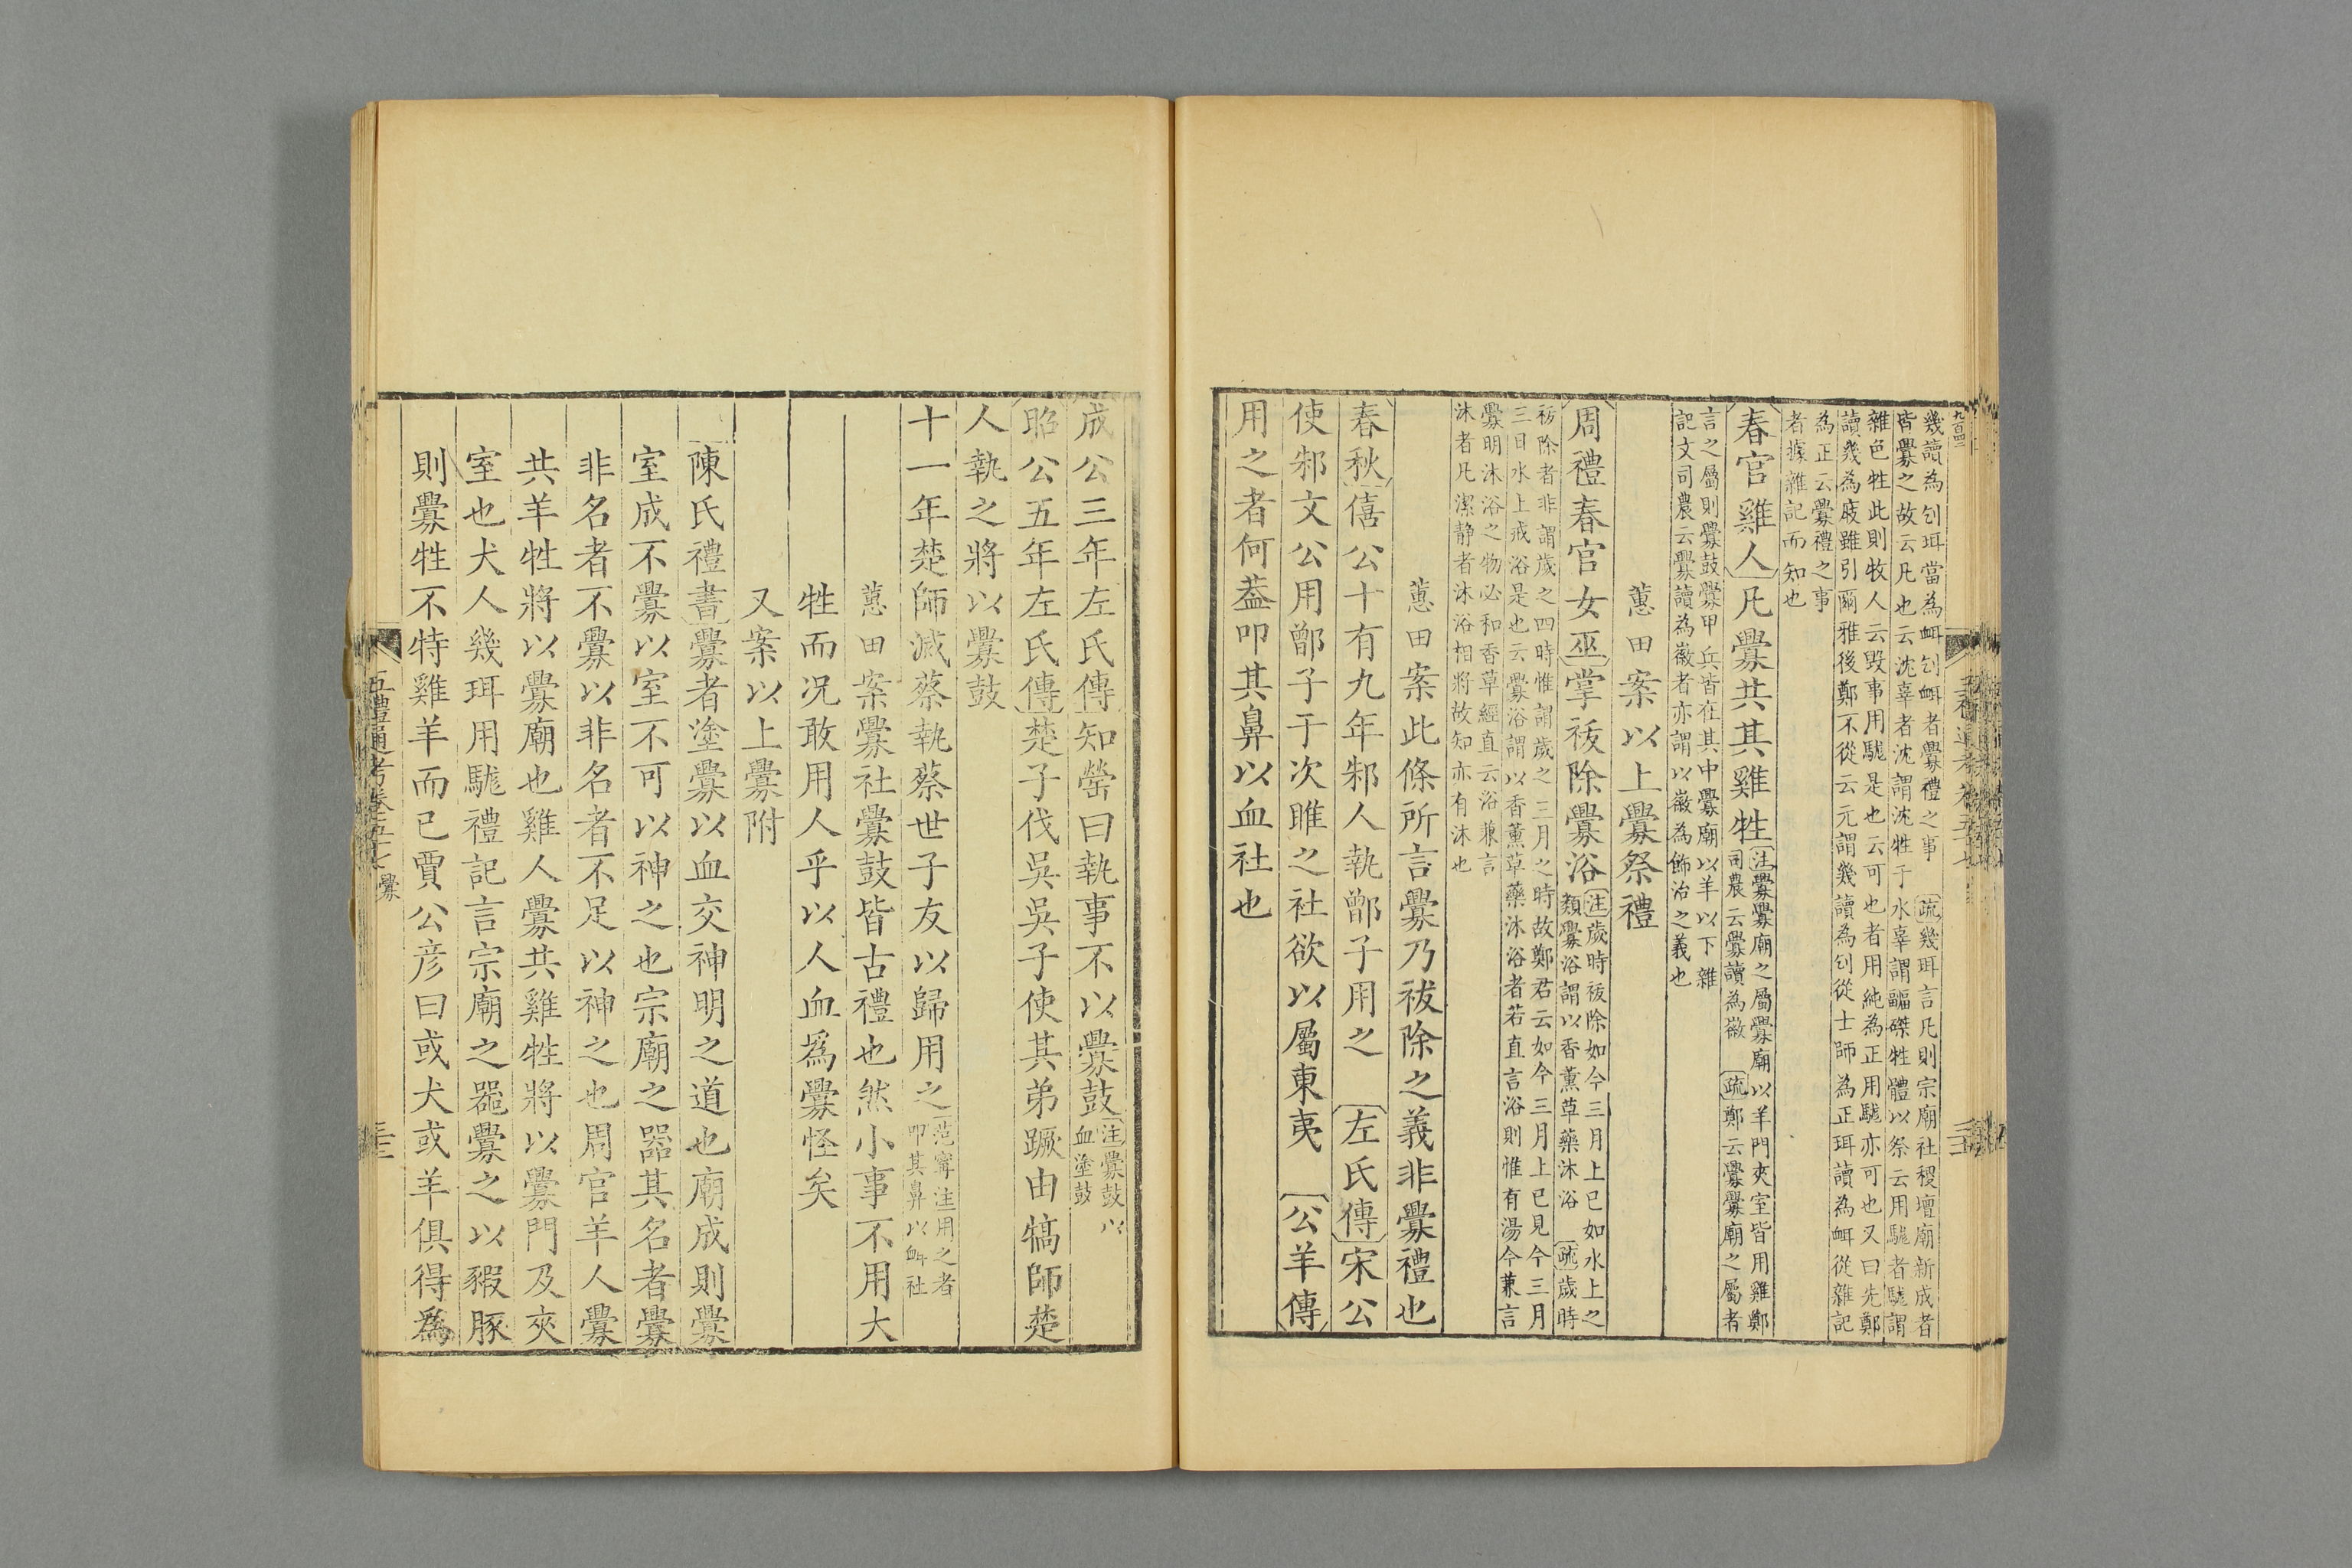 幾讀為刉珥當為衈刉衈者釁禮之事 疏幾珥言凡則宗廟社稷壇廟新成者
皆釁之故云凡也云沈辜者沈謂沈牲于水辜謂疈磔牲體以祭云用駹者駹謂
雜色牲此則牧人云毀事用駹是也云可也者用純為正用駹亦可也又曰先鄭
讀幾為庪雖引爾雅後鄭不從云元謂幾讀為刉從士師為正珥讀為衈從雜記
為正云釁禮之事
者據雜記而知也
春官雞人凡釁共其雞牲
注釁釁廟之屬釁廟以羊門夾室皆用雞鄭
司農云釁讀為徽 疏鄭云釁釁廟之屬者
言之屬則釁鼓釁甲兵皆在其中釁廟以羊以下雜
記文司農云釁讀為徽者亦謂以徽為飾治之義也
蕙田案以上釁祭禮
周禮春官女巫掌祓除釁浴
注歲時祓除如今三月上巳如水上之
類釁浴謂以香薰草藥沐浴 疏歲時
祓除者非謂歲之四時惟謂歲之三月之時故鄭君云如今三月上巳見今三月
三日水上戒浴是也云釁浴謂以香薰草藥沐浴者若直言浴則惟有湯今兼言
釁明沐浴之物必和香草經直云浴兼言
沐者凡潔靜者沐浴相將故知亦有沐也
蕙田案此條所言釁乃祓除之義非釁禮也
春秋僖公十有九年邾人執鄫子用之 左氏傳宋公
使邾文公用鄫子于次睢之社欲以屬東夷 公羊傳
用之者何葢叩其鼻以血社也
成公三年左氏傳知罃曰執事不以釁鼓
注釁鼓以
血塗鼓
昭公五年左氏傳楚子伐吳吳子使其弟蹶由犒師楚
人執之將以釁鼓
十一年楚師滅蔡執蔡世子友以歸用之
范甯注用之者
叩其鼻以衈社
蕙田案釁社釁鼓皆古禮也然小事不用大
牲而况敢用人乎以人血爲釁怪矣
又案以上釁附
陳氏禮書釁者塗釁以血交神明之道也廟成則釁
室成不釁以室不可以神之也宗廟之器其名者釁
非名者不釁以非名者不足以神之也周官羊人釁
共羊牲將以釁廟也雞人釁共雞牲將以釁門及夾
室也犬人幾珥用駹禮記言宗廟之器釁之以豭豚
則釁牲不特雞羊而已賈公彦曰或犬或羊俱得爲
五禮通考卷五十七 釁